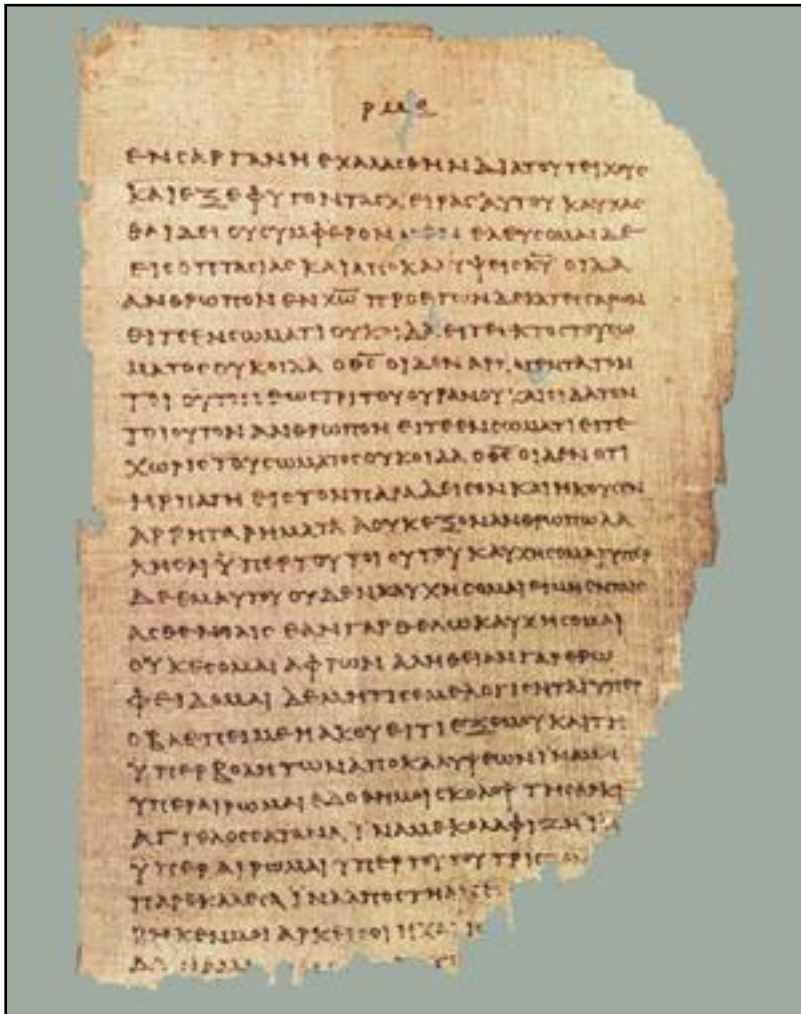 ΡΜΕ
ΕΝ ΣΑΡΓΑΝΗ ΕΧΑΛΑΣΘΗΝ ΔΙΑ ΤΟΥ ΤΕΙΧΟΥΣ
ΚΑΙ ΕΞΕΦΥΓΟΝ ΤΑΣ ΧΕΙΡΑΣ ΑΥΤΟΥ ΚΑΥΧΑΣ
ΘΑΙ ΔΕΙ ΟΥ ΣΥΜΦΕΡΟΝ ΜΕΝ ΕΛΕΥΣΟΜΑΙ ΔΕ
ΕΙΣ ΟΠΤΑΣΙΑΣ ΚΑΙ ΑΠΟΚΑΛΥΨΕΙΣ Κ̅Υ̅ ΟΙΔΑ
ΑΝΘΡΩΠΟΝ ΕΝ Χ̅Ω̅ ΠΡΟ ΕΤΩΝ ΔΕΚΑΤΕΣΣΑΡΩΝ
ΕΙΤΕ ΕΝ ΣΩΜΑΤΙ ΟΥΚ ΟΙΔΑ ΕΙΤΕ ΕΚΤΟΣ ΤΟΥ ΣΩ
ΜΑΤΟΣ ΟΥΚ ΟΙΔΑ Ο Θ̅Σ̅ ΟΙΔΕΝ ΑΡΠΑΓΕΝΤΑ ΤΟΝ
ΤΟΙΟΥΤΟΝ ΕΩΣ ΤΡΙΤΟΥ ΟΥΡΑΝΟΥ ΚΑΙ ΟΙΔΑ ΤΟΝ
ΤΟΙΟΥΤΟΝ ΑΝΘΡΩΠΟΝ ΕΙΤΕ ΕΝ ΣΩΜΑΤΙ ΕΙΤΕ
ΧΩΡΙΣ ΤΟΥ ΣΩΜΑΤΟΣ ΟΥΚ ΟΙΔΑ Ο Θ̅Σ̅ ΟΙΔΕΝ ΟΤΙ
ΗΡΠΑΓΗ ΕΙΣ ΤΟΝ ΠΑΡΑΔΕΙΣΟΝ ΚΑΙ ΗΚΟΥΣΕΝ
ΑΡΡΗΤΑ ΡΗΜΑΤΑ Α ΟΥΚ ΕΞΟΝ ΑΝΘΡΩΠΩ ΛΑ
ΛΗΣΑΙ ΫΠΕΡ ΤΟΥ ΤΟΙΟΥΤΟΥ ΚΑΥΧΗΣΟΜΑΙ ΥΠΕΡ
ΔΕ ΕΜΑΥΤΟΥ ΟΥΔΕΝ ΚΑΥΧΗΣΟΜΑΙ ΕΙ ΜΗ ΕΝ ΤΑΙΣ
ΑΣΘΕΝΕΙΑΙΣ ΕΑΝ ΓΑΡ ΘΕΛΩ ΚΑΥΧΗΣΟΜΑΙ
ΟΥΚ ΕΣΟΜΑΙ ΑΦΡΩΝ ΑΛΗΘΕΙΑΝ ΓΑΡ ΕΡΩ
ΦΕΙΔΟΜΑΙ ΔΕ ΜΗ ΤΙΣ ΕΜΕ ΛΟΓΙΣΗΤΑΙ ΥΠΕΡ
Ο ΒΛΕΠΕΙ ΜΕ Η ΑΚΟΥΕΙ ΤΙ ΕΞ ΕΜΟΥ ΚΑΙ ΤΗ
ΫΠΕΡΒΟΛΗ ΤΩΝ ΑΠΟΚΑΛΥΨΕΩΝ ΙΝΑ ΜΗ
ΥΠΕΡΑΙΡΩΜΑΙ ΕΔΟΘΗ ΜΟΙ ΣΚΟΛΟΨ ΤΗ ΣΑΡΚΙ
ΑΓΓΕΛΟΣ ΣΑΤΑΝΑ ΙΝΑ ΜΕ ΚΟΛΑΦΙΖΗ Ι
ΫΠΕΡΑΙΡΩΜΑΙ ΥΠΕΡ ΤΟΥΤΟΥ ΤΡΙΣ
ΠΑΡΕΚΑΛΕΣΑ ΙΝΑ ΑΠΟΣΤΗ
ΡΗΚΕΝ ΜΟΙ ΑΡΚΕΙ ΣΟΙ Η ΧΑΡΙΣ